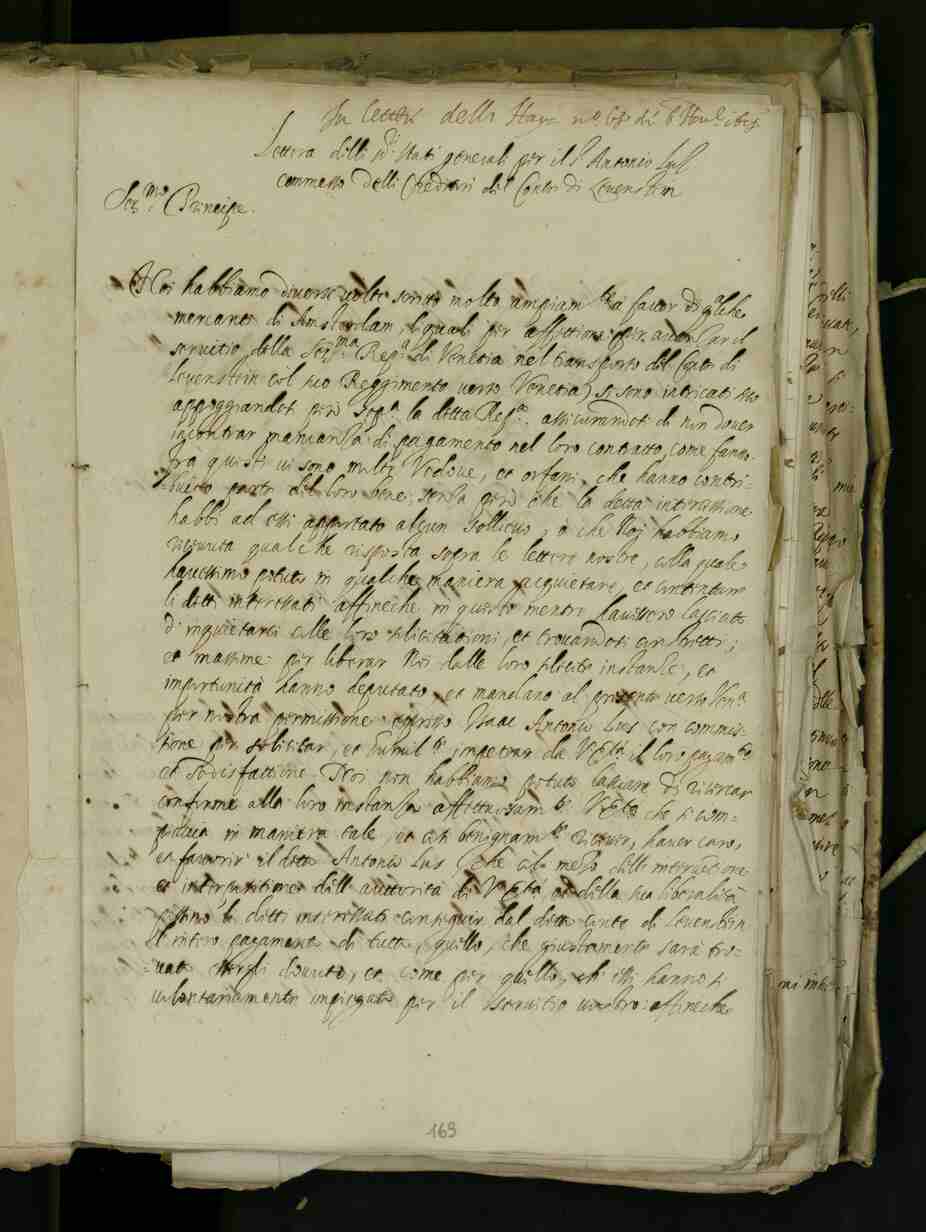 In lettera dell'Haya nº 69 di 6 1619
Lettera delli ss.ri Stati generali per il s.r Antonio Lus
commesso delli Creditori del Conte di Levenstein
Ser.mo Principe.
Noi habbiamo diverse volte scritto molto ampiam.te a favor di q.lche
mercanti di Amsterdam, li quali per affettione per avanzar il
servitio della Ser.ma Rep.ca di Venetia nel transporto del Conte di
Levenstein col suo Reggimento verso Venetia, si sono intricati
appoggiandosi però sop.a la detta Rep.ca assicurandosi di non dover
incontrar mancanza di pagamento nel loro contratto, come fanno.
Fra questi vi sono molte Vedove, et orfani, che hanno contri=
buito parte del loro bene, senza però che la detta intercessione
habbi ad essi apportato alcun sollievo, o che Noi habbiamo
ricevuta qualche risposta sopra le lettere nostre, colla quale
havessimo potuto in qualche maniera acquietare, et contentare
li detti interessati affineche in questo mentre havessero lasciato
d'inquietarci colle loro solicitationi, et trovandosi constretti;
et massime per liberar Noi dalle loro solecite instanze, et
importunità hanno deputato et mandano al presente verso Ven.a
per nostra permissione espresso Isaac Antonio Lus con commis=
sione per solicitar, et humil.te impetrar da V. Ser.tà il loro pagam.to
et sodisfattione. Noi non habbiamo potuto lasciare di ricercar
conforme alla loro instanza affettuosam.te V. Ser.tà che si com=
piaccia in maniera tale, et così benignam.te ricever, haver caro,
et favorir il detto Antonio Lus che col mezo dell'intercessione
et interpositione dell'auttorità di V. Ser.tà et della sua liberalità
possino li detti interessati conseguir dal detto conte di Levenstein
il intiero pagamento di tutto quello, che giustamente sarà tro=
vato essergli dovuto, et come per quello, ch'essi hanno sì
volontariamente impiegato per il servitio vostro: affineche
163